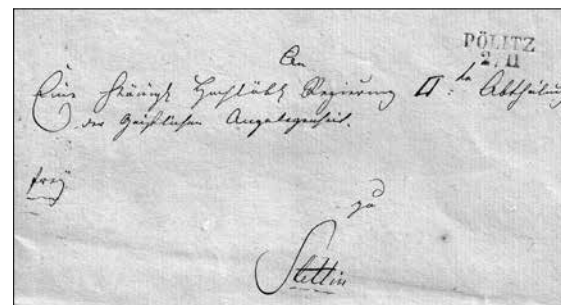 PÖLITZ
2/11
An
Eine Königl Hochlöbl Regierung II: te Abtheilung
der Geistlichen Angelegenheit.
frey
zu
Stettin